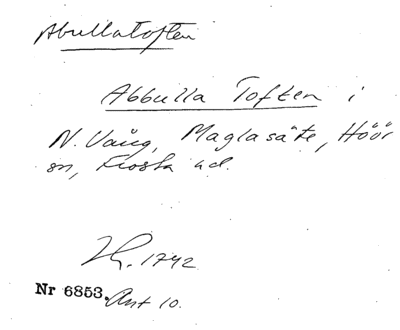 Abullatoften
Abbulla Toften i
N. Vång, Maglasäte, Höör
sn, Frosta hd.
Lh. 1742
Nr 6853. Ant 10.